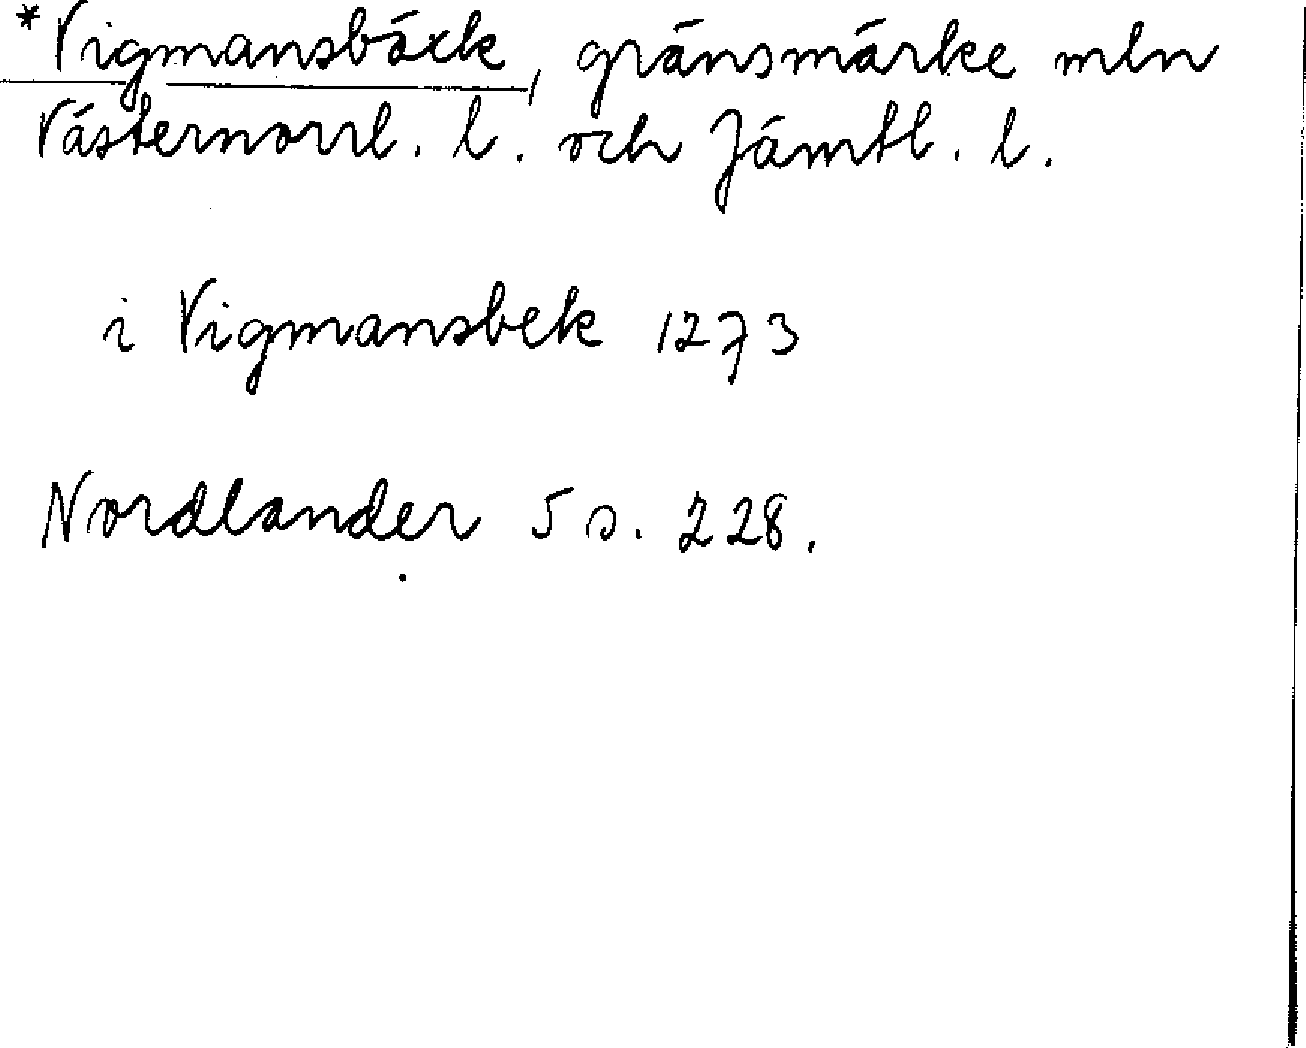 *Vigmansbäck, gränsmärke mln
Västernorrl. l. och Jämtl. l.
i Vigmansbek 1273
Nordlander 5 s. 228.